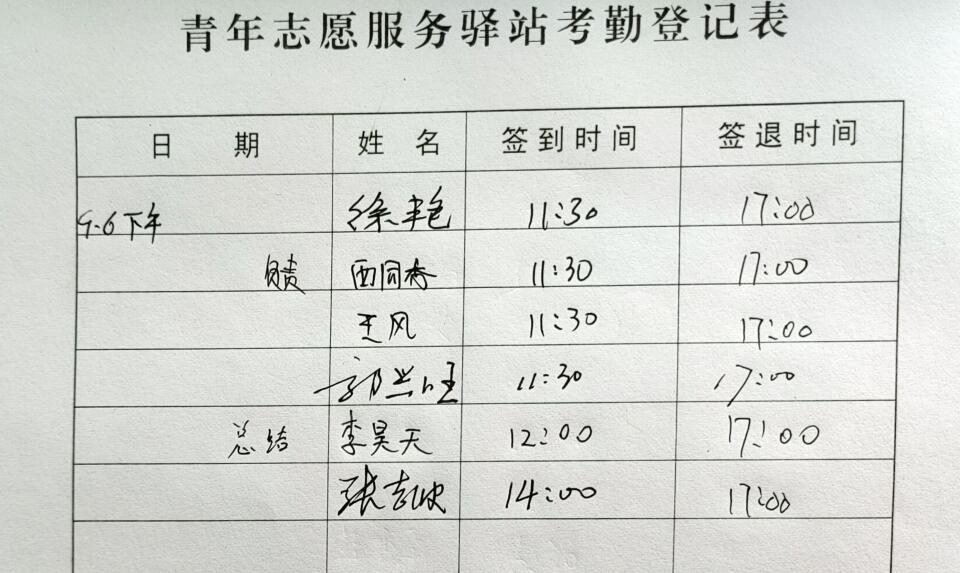 青年志愿服务驿站考勤登记表
日 期 姓 名 签到时间 签退时间
9.6下午 徐 11:30 17:00
西同春 11:30 17:00
王风 11:30 17:00
郭兴旺 11:30 17:00
总结 李昊天 12:00 17:00
张志 14:00 17:00